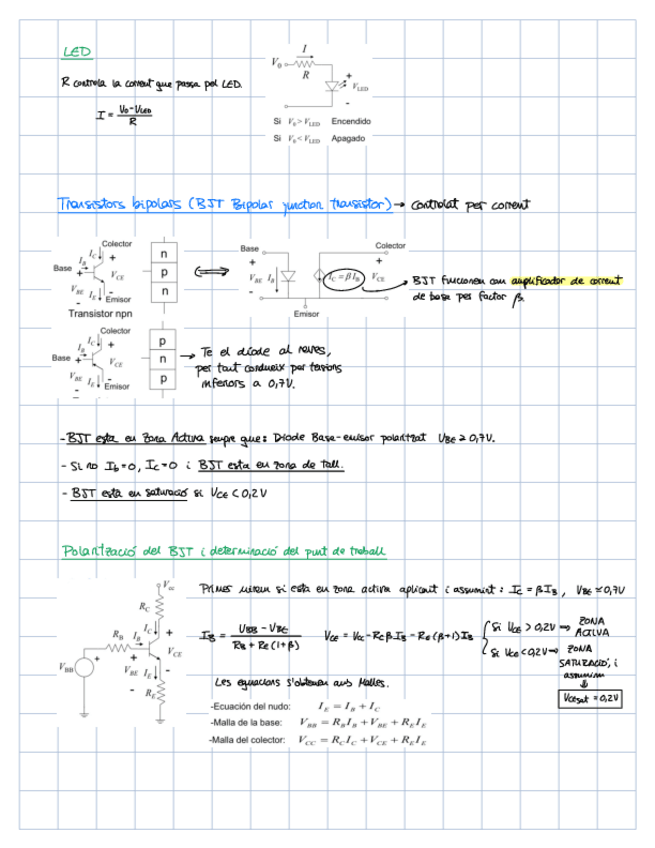 LED
R controla la corrent que passa pel LED.
I = V0-VLED / R
I
V0
R
+
VLED
-
Si V0 > VLED Encendido
Si V0 < VLED Apagado
Transistors bipolars (BJT Bipolar junction transistor) → controlat per corrent
Colector
IC
+
IB
Base
+
VCE
VBE
IE
-
Emisor
Transistor npn
n
p
n
Base
Colector
+
+
VBE
IB
IC = βIB
VCE
-
-
Emisor
BJT funcionen com amplificador de corrent
de base per factor β.
Colector
IC
+
IB
Base
+
VCE
VBE
IE
-
Emisor
p
n
p
→ Te el díode al reves,
per tant condueix per tensions
inferiors a 0,7V.
- BJT esta en Zona Activa sempre que: Díode Base-emisor polaritzat VBE ≥ 0,7V.
- Si no Ib=0, Ic=0 i BJT esta en zona de tall.
- BJT esta en saturació si VCE < 0,2V
Polarització del BJT i determinació del punt de treball
Vcc
RC
IC
+
RB
IB
VCE
+
VBE
IE
-
-
VBB
RE
Primer mirem si esta en zona activa aplicant i assumint: Ic = βIB, VBE ≃ 0,7V
IB = VBB - VBE / RB + RE(1+β)
VCE = Vcc - RcβIB - RE(β+1)IB
Si VCE > 0,2V → ZONA ACTIVA
Si VCE < 0,2V → ZONA SATURACIÓ, i
assumim
VCEsat = 0,2V
Les equacions s'obtenen amb Malles.
-Ecuación del nudo: IE = IB + IC
-Malla de la base: VBB = RBIB + VBE + REIE
-Malla del colector: VCC = RCIC + VCE + REIE